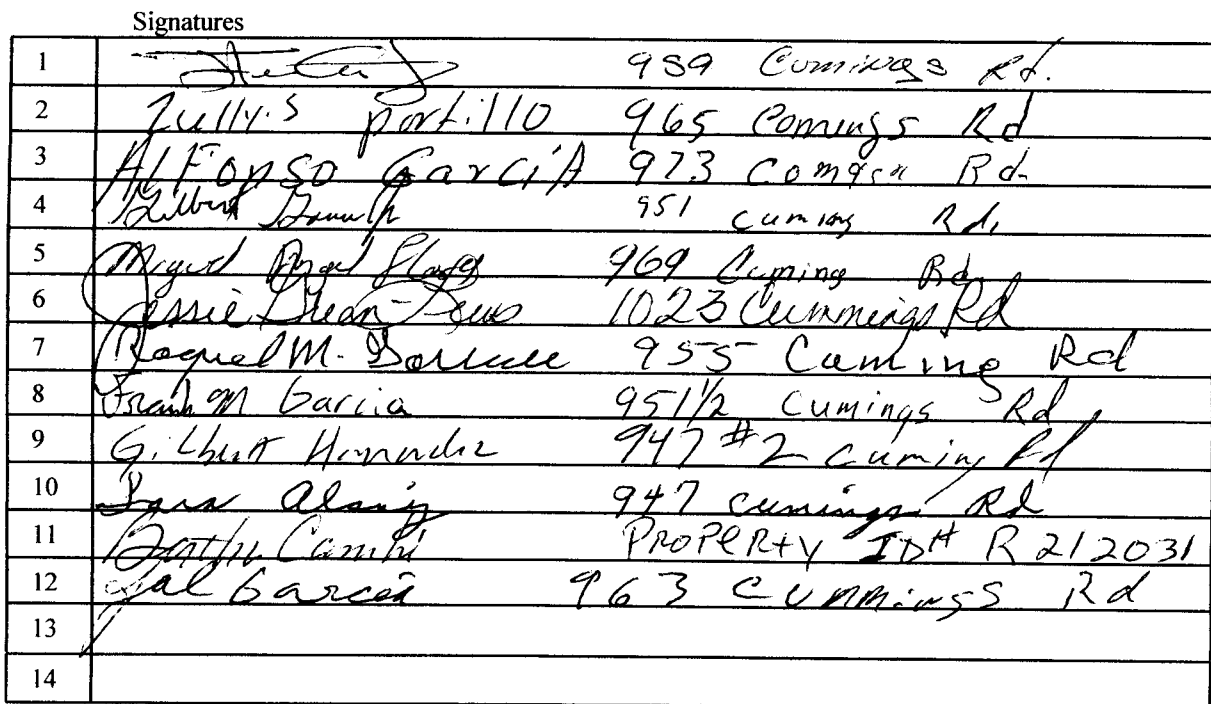 Signatures
1 959 Cumings Rd.
2 Zully.s portillo 965 Comings Rd
3 AlFonso GarciA 973 Rd.
4 Gilbert 951 cuming Rd.
5 Miguel Angel 969 Cuming Rd
6 Jessie 1023 Cummings Rd
7 Raquel M. 955 Cuming Rd
8 Frank M Garcia 951 1/2 Cumings Rd
9 Gilbert Hernandez 947 #2 Cuming Rd
10 947 Cumings Rd
11 PROPERty ID# R 212031
12 Garcia 963 Cummings Rd
13
14